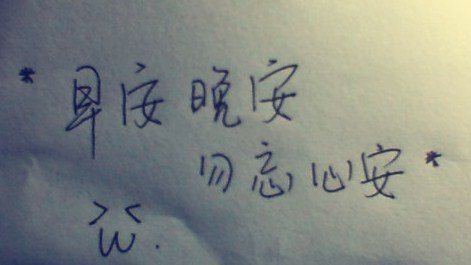 *早安晚安
勿忘心安*
>w<.